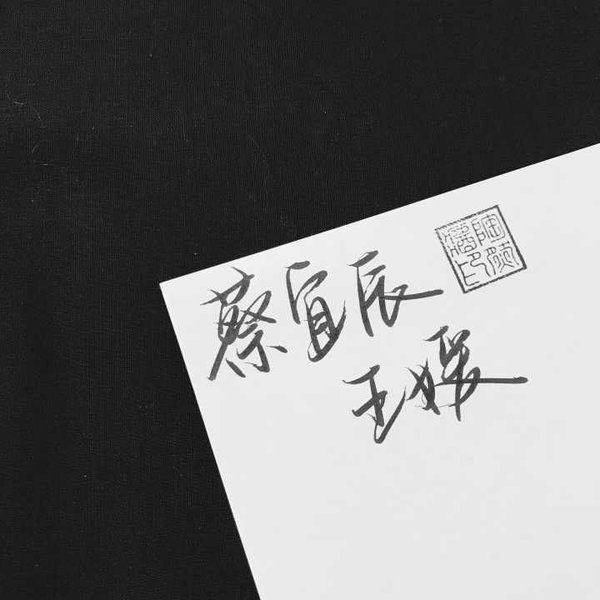 蔡宜辰
王媛